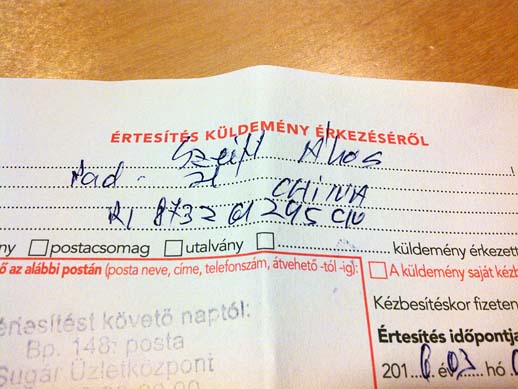 ÉRTESÍTÉS KÜLDEMÉNY ÉRKEZÉSÉRŐL
Ákos
21 CHINA
RI 873201295 CN
ny □ postacsomag □ utalvány □ küldemény érkezett
ő az alábbi postán (posta neve, címe, telefonszám, átvehető -tól -ig):
□ A küldemény saját kézb
Kézbesítéskor fizeten
értesítést követő naptól:
Bp. 148. posta
Sugár Üzletközpont
Értesítés időpontja
201 6. év 03 hó